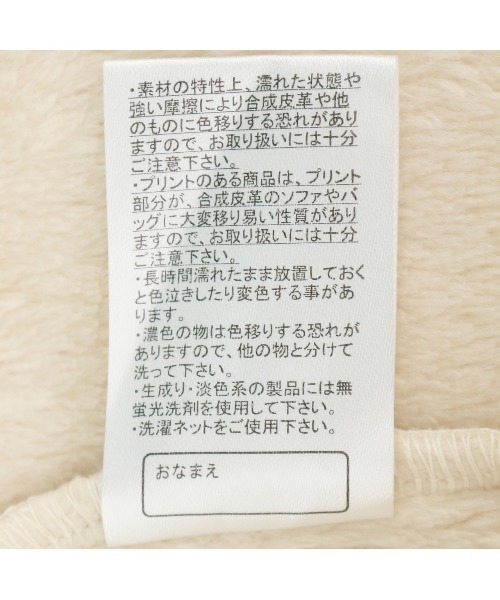 ・素材の特性上、濡れた状態や
強い摩擦により合成皮革や他
のものに色移りする恐れがあり
ますので、お取り扱いには十分
ご注意下さい。
・プリントのある商品は、プリント
部分が、合成皮革のソファやバ
ッグに大変移り易い性質があり
ますので、お取り扱いには十分
ご注意下さい。
・長時間濡れたまま放置しておく
と色泣きしたり変色する事があ
ります。
・濃色の物は色移りする恐れが
ありますので、他の物と分けて
洗って下さい。
・生成り・淡色系の製品には無
蛍光洗剤を使用して下さい。
・洗濯ネットをご使用下さい。
おなまえ